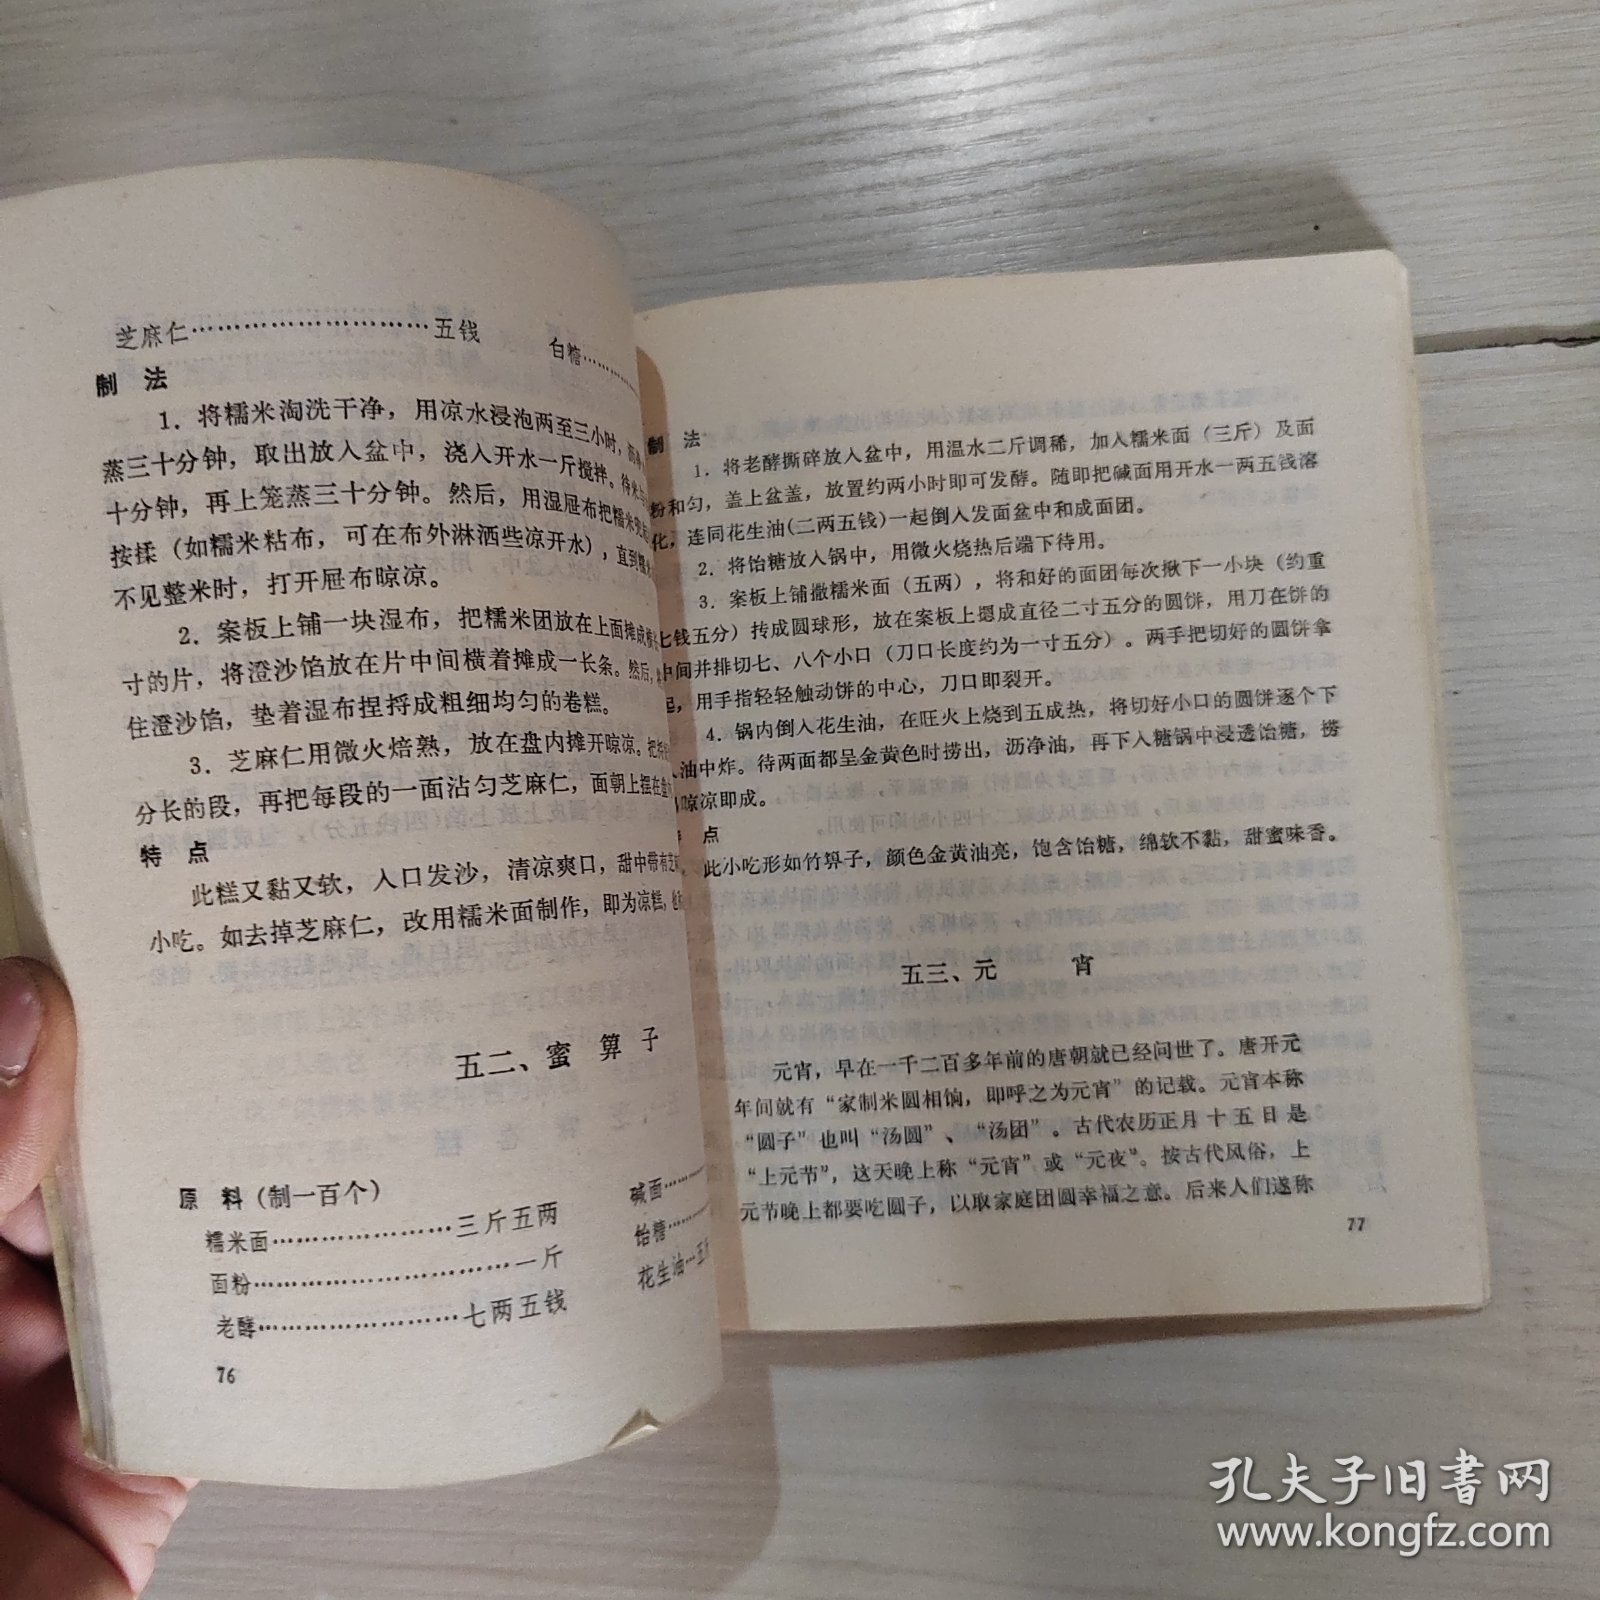 芝麻仁…………………………五钱　白糖…………
制　法
1．将糯米淘洗干净，用凉水浸泡两至三小时，
蒸三十分钟，取出放入盆中，浇入开水一斤搅拌。待
十分钟，再上笼蒸三十分钟。然后，用湿屉布把糯米
按揉（如糯米粘布，可在布外淋洒些凉开水），直到
不见整米时，打开屉布晾凉。
2．案板上铺一块湿布，把糯米团放在上面摊成
寸的片，将澄沙馅放在片中间横着摊成一长条。然后，
住澄沙馅，垫着湿布捏捋成粗细均匀的卷糕。
3．芝麻仁用微火焙熟，放在盘内摊开晾凉。把
分长的段，再把每段的一面沾匀芝麻仁，面朝上摆在盘
特　点
此糕又黏又软，入口发沙，清凉爽口，甜中带有芝
小吃。如去掉芝麻仁，改用糯米面制作，即为凉糕，
五二、蜜箅子
原　料（制一百个）
糯米面…………………三斤五两　碱面……
面粉…………………………一斤　饴糖……
老酵……………………七两五钱　花生油…五
76
制　法
1．将老酵撕碎放入盆中，用温水二斤调稀，加入糯米面（三斤）及面
粉和匀，盖上盆盖，放置约两小时即可发酵。随即把碱面用开水一两五钱溶
化，连同花生油(二两五钱)一起倒入发面盆中和成面团。
2．将饴糖放入锅中，用微火烧热后端下待用。
3．案板上铺撒糯米面（五两），将和好的面团每次揪下一小块（约重
七钱五分）抟成圆球形，放在案板上摁成直径二寸五分的圆饼，用刀在饼的
中间并排切七、八个小口（刀口长度约为一寸五分）。两手把切好的圆饼拿
起，用手指轻轻触动饼的中心，刀口即裂开。
4．锅内倒入花生油，在旺火上烧到五成热，将切好小口的圆饼逐个下
入油中炸。待两面都呈金黄色时捞出，沥净油，再下入糖锅中浸透饴糖，捞
晾凉即成。
点
此小吃形如竹箅子，颜色金黄油亮，饱含饴糖，绵软不黏，甜蜜味香。
五三、元　　宵
元宵，早在一千二百多年前的唐朝就已经问世了。唐开元
年间就有“家制米圆相饷，即呼之为元宵”的记载。元宵本称
“圆子”也叫“汤圆”、“汤团”。古代农历正月十五日是
“上元节”，这天晚上称“元宵”或“元夜”。按古代风俗，上
元节晚上都要吃圆子，以取家庭团圆幸福之意。后来人们遂称
77
孔夫子旧书网
www.kongfz.com